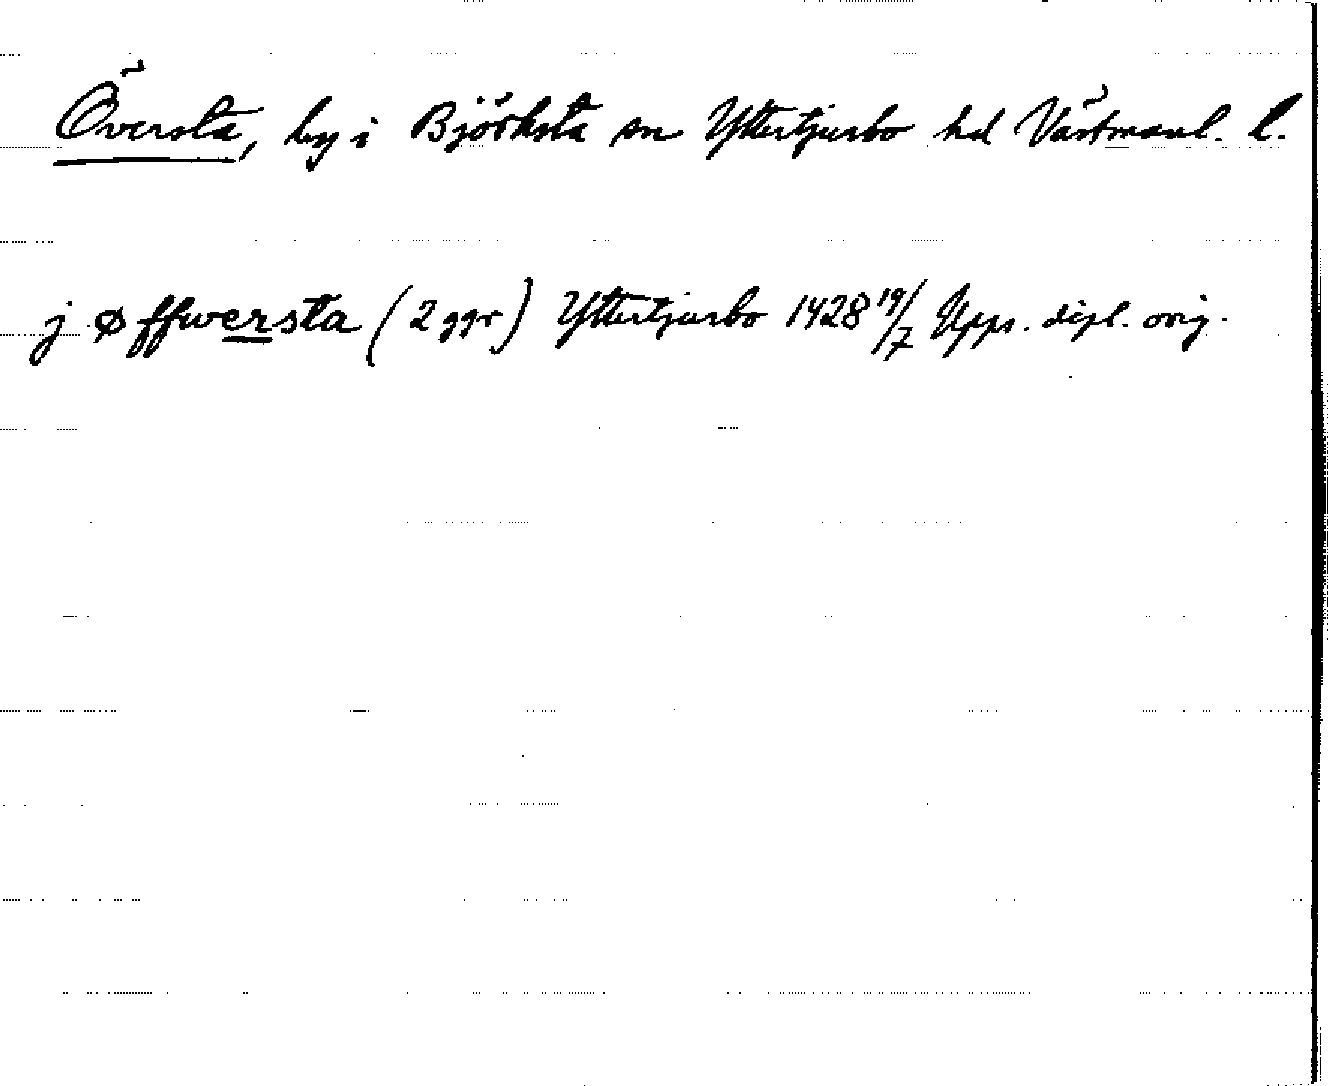 Översta, by i Björksta sn Yttertjurbo hd Västmanl. l.
j øffwersta (2 ggr) Yttertjurbo 1428 19/7 Upps. dipl. orig.